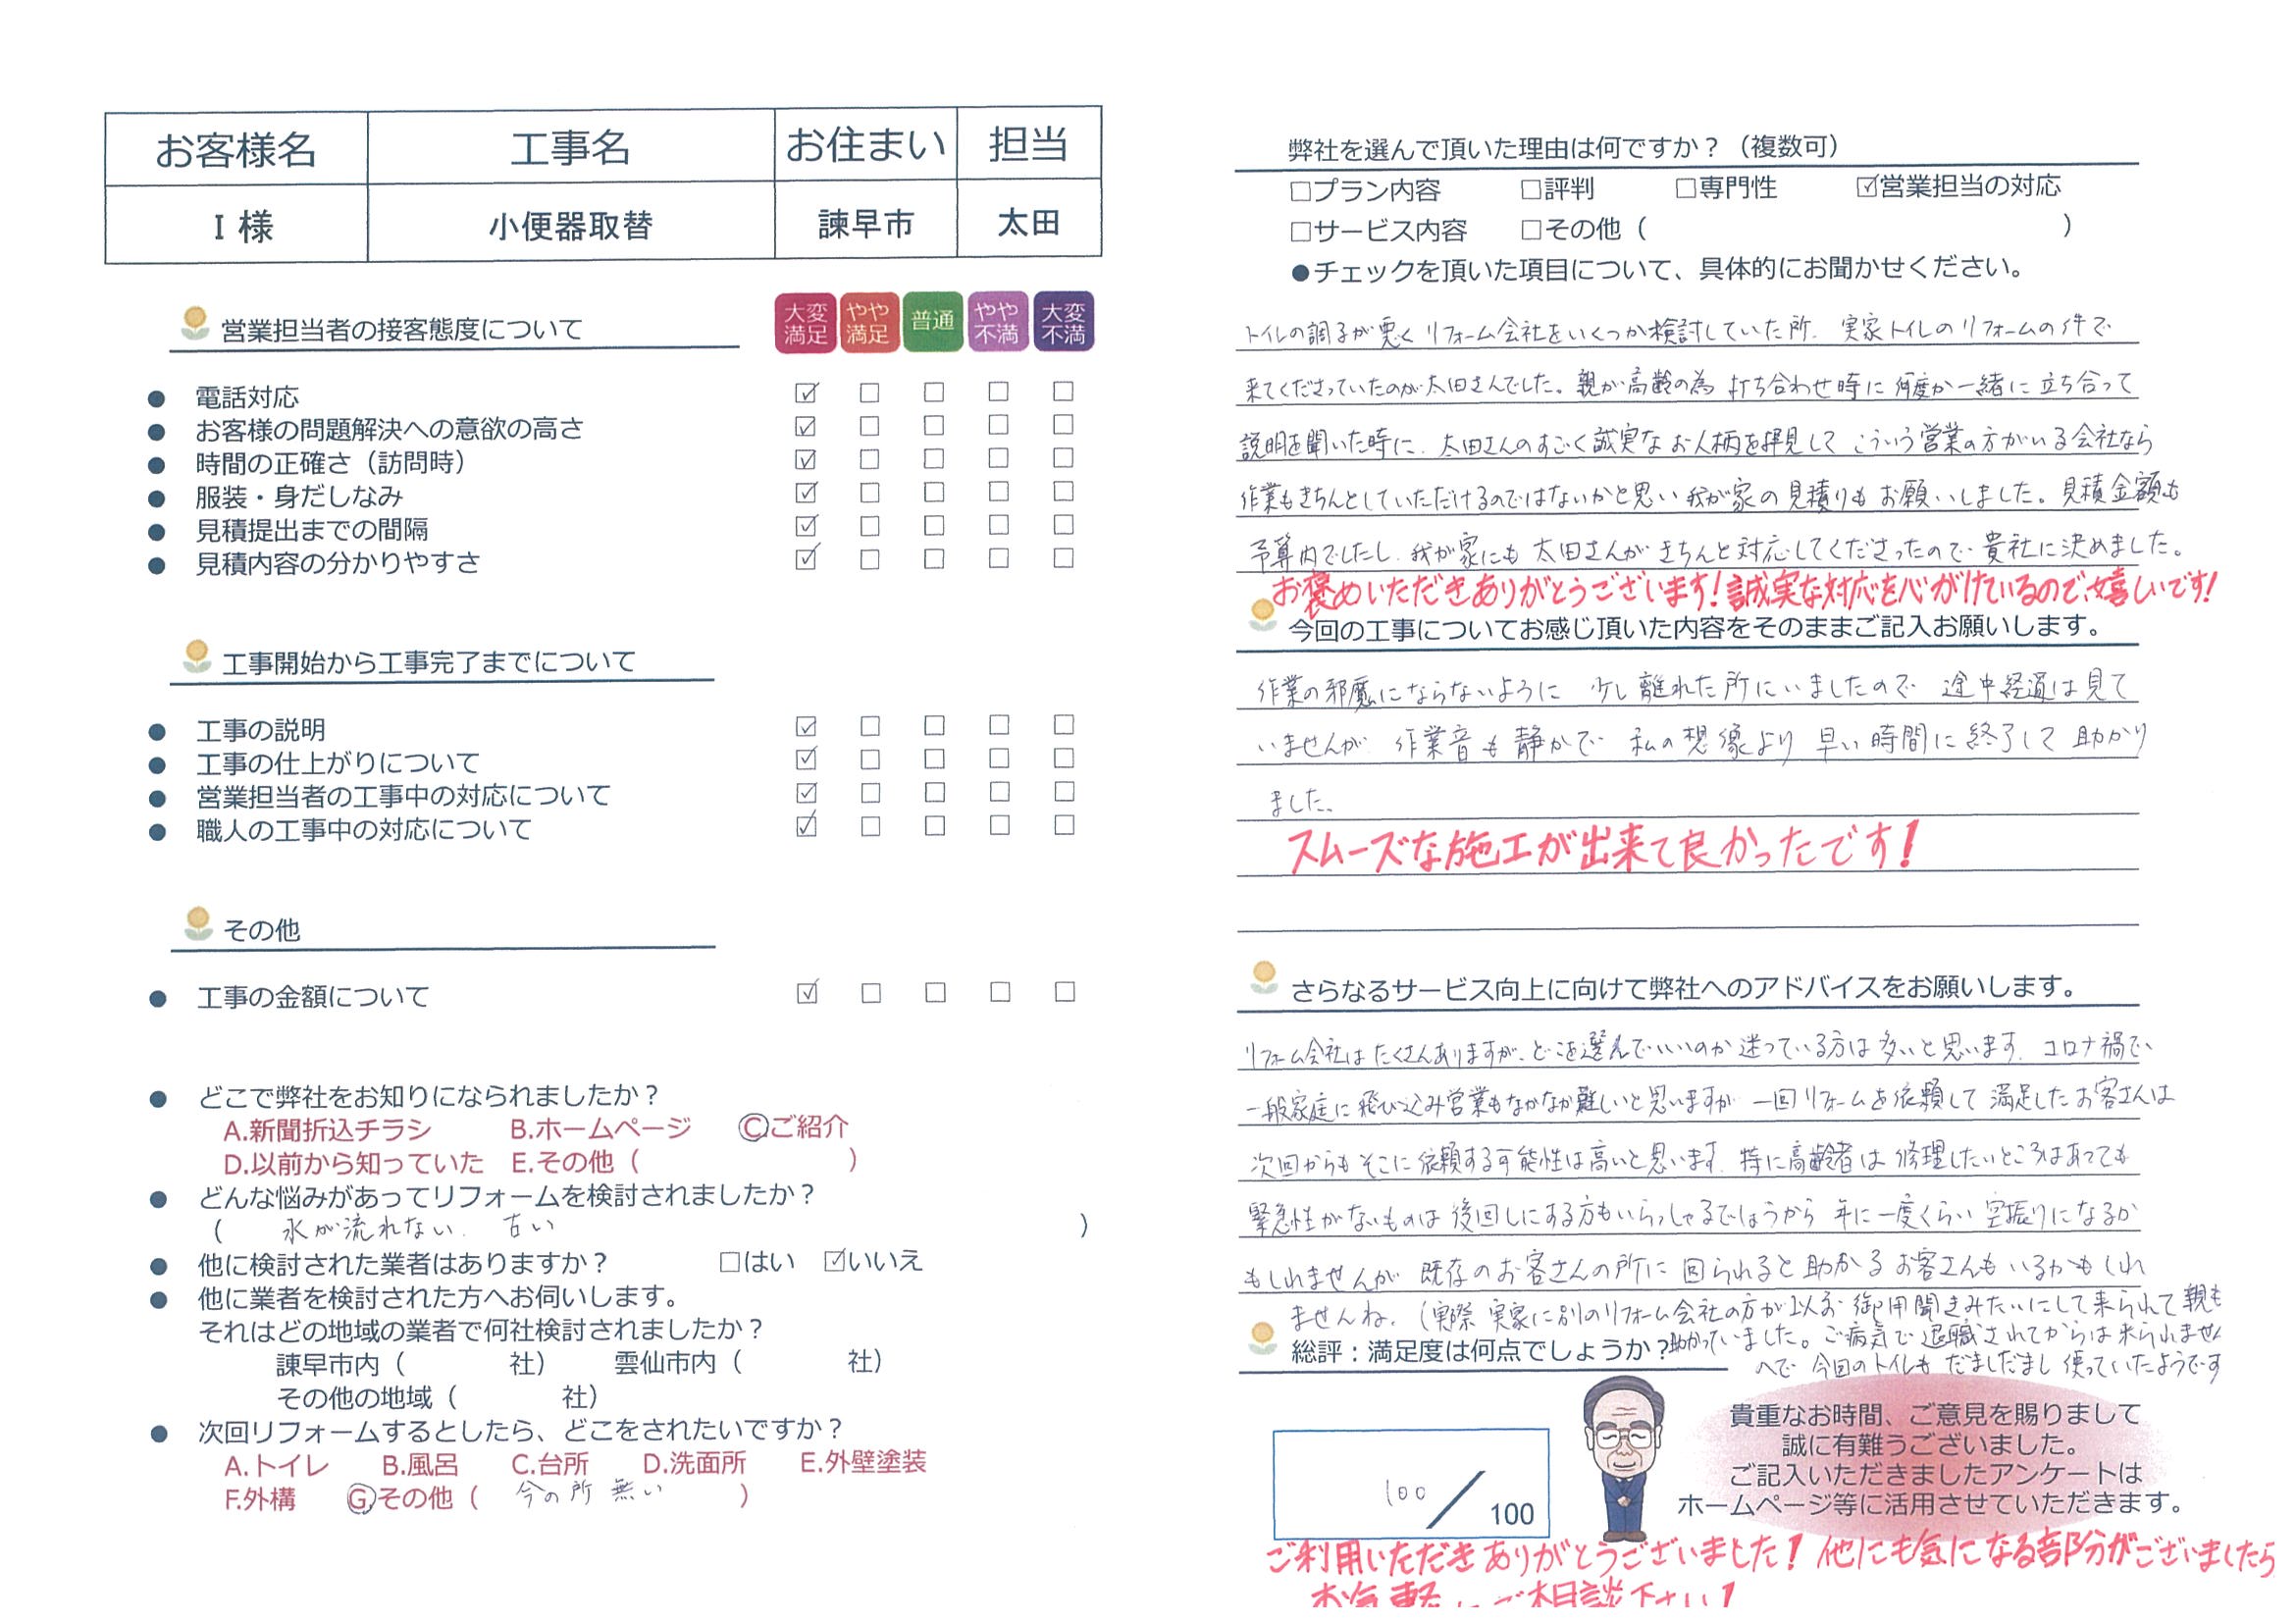 お客様名 工事名 お住まい 担当
I 様 小便器取替 諫早市 太田
営業担当者の接客態度について
大変満足 やや満足 普通 やや不満 大変不満
● 電話対応 ☑ □ □ □ □
● お客様の問題解決への意欲の高さ ☑ □ □ □ □
● 時間の正確さ（訪問時） ☑ □ □ □ □
● 服装・身だしなみ ☑ □ □ □ □
● 見積提出までの間隔 ☑ □ □ □ □
● 見積内容の分かりやすさ ☑ □ □ □ □
工事開始から工事完了までについて
● 工事の説明 ☑ □ □ □ □
● 工事の仕上がりについて ☑ □ □ □ □
● 営業担当者の工事中の対応について ☑ □ □ □ □
● 職人の工事中の対応について ☑ □ □ □ □
その他
● 工事の金額について ☑ □ □ □ □
● どこで弊社をお知りになられましたか？
A.新聞折込チラシ B.ホームページ C.ご紹介
D.以前から知っていた E.その他（ ）
● どんな悩みがあってリフォームを検討されましたか？
（ 水が流れない. 古い ）
● 他に検討された業者はありますか？ □はい ☑いいえ
● 他に業者を検討された方へお伺いします。
それはどの地域の業者で何社検討されましたか？
諫早市内（ 社） 雲仙市内（ 社）
その他の地域（ 社）
● 次回リフォームするとしたら、どこをされたいですか？
A.トイレ B.風呂 C.台所 D.洗面所 E.外壁塗装
F.外構 G.その他（ 今の所 無い ）
弊社を選んで頂いた理由は何ですか？（複数可）
□プラン内容 □評判 □専門性 ☑営業担当の対応
□サービス内容 □その他（ ）
●チェックを頂いた項目について、具体的にお聞かせください。
トイレの調子が悪く リフォーム会社をいくつか検討していた所. 実家トイレのリフォームの件で
来てくださっていたのが太田さんでした。親が高齢の為 打ち合わせ時に 何度か一緒に 立ち合って
説明を聞いた時に. 太田さんのすごく誠実な お人柄を拝見して こういう営業の方がいる会社なら
作業もきちんとしていただけるのではないかと思い 我が家の見積りもお願いしました。見積金額も
予算内でしたし. 我が家にも 太田さんが きちんと対応してくださったので 貴社に決めました。
お褒めいただきありがとうございます！誠実な対応を心がけているので、嬉しいです！
今回の工事についてお感じ頂いた内容をそのままご記入お願いします。
作業の邪魔にならないように 少し離れた所にいましたので 途中経過は見て
いませんが 作業音も静かで 私の想像より 早い時間に終了して 助かり
ました。
スムーズな施工が出来て良かったです！
さらなるサービス向上に向けて弊社へのアドバイスをお願いします。
リフォーム会社は たくさんありますが、どこを選んでいいのか迷っている方は多いと思います. コロナ禍で
一般家庭に飛び込み営業もなかなか難しいと思いますが 一回リフォームを依頼して 満足したお客さんは
次回からもそこに依頼する可能性は高いと思います. 特に高齢者は 修理したいところはあっても
緊急性がないものは 後回しにする方もいらっしゃるでしょうから 年に一度くらい 空振りになるか
もしれませんが 既存のお客さんの所に 回られると助かる お客さんもいるかもしれ
ませんね.（実際 実家に別のリフォーム会社の方が以前 御用聞きみたいにして来られて 親も
助かっていました。ご病気で 退職されてからは来られません
総評：満足度は何点でしょうか？
で 今回のトイレも だましだまし 使っていたようです
100／100
貴重なお時間、ご意見を賜りまして
誠に有難うございました。
ご記入いただきましたアンケートは
ホームページ等に活用させていただきます。
ご利用いただきありがとうございました！他にも気になる部分がございましたら
お気軽にご相談下さい！